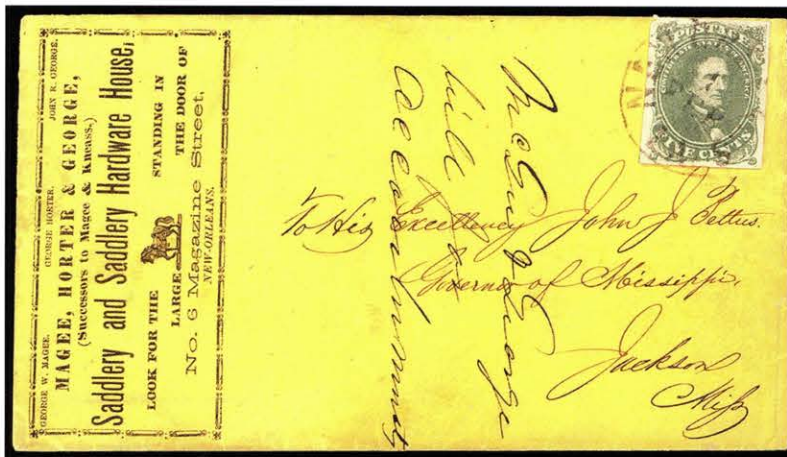 GEORGE W. MAGEE. GEORGE HORTER. JOHN R. GEORGE.
MAGEE, HORTER & GEORGE,
(Successors to Magee & Kneass.)
Saddlery and Saddlery Hardware House,
LOOK FOR THE STANDING IN
LARGE THE DOOR OF
No. 6 Magazine Street,
NEW-ORLEANS.
POSTAGE
CONFEDERATE STATES OF AMERICA
FIVE CENTS
To His Excellency John J Pettus.
Governor of Mississippi,
Jackson
Miſs
& George
bill